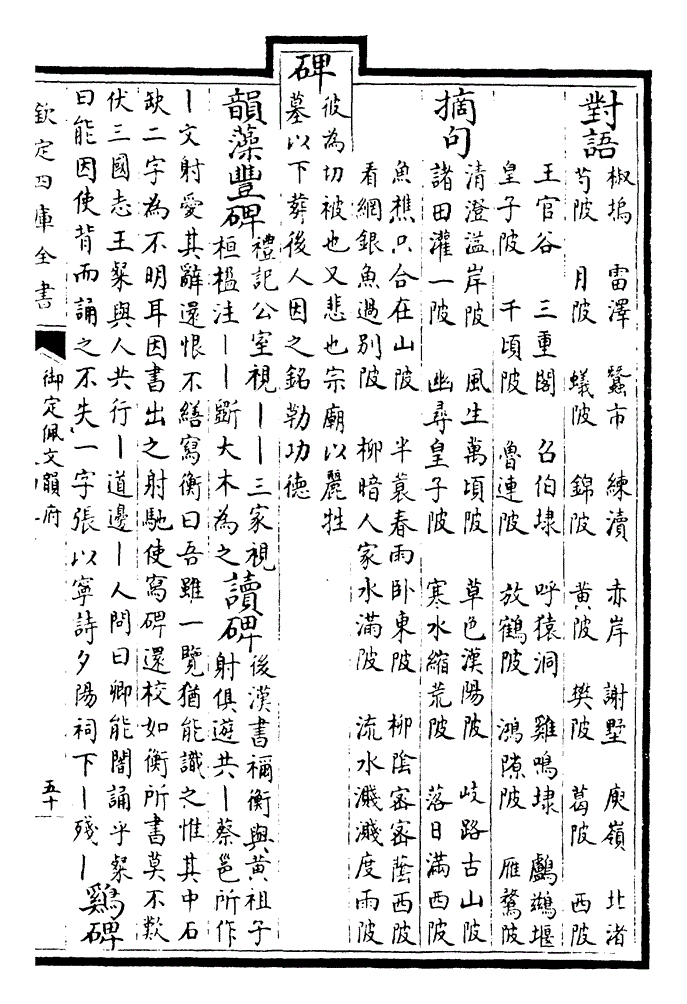 對語
椒塢　雷澤　蠶市　練瀆　赤岸　謝墅　庾嶺　北渚
芍陂　月陂　蟻陂　錦陂　黄陂　樊陂　葛陂　西陂
王官谷　三重閣　召伯埭　呼猿洞　雞鳴埭　鸕鷀堰
皇子陂　千頃陂　魯連陂　放鶴陂　鴻隙陂　雁鶩陂
摘句
清澄溢岸陂　風生萬頃陂　草色漢陽陂　岐路古山陂
諸田灌一陂　幽尋皇子陂　寒水縮荒陂　落日滿西陂
魚樵只合在山陂　半蓑春雨卧東陂　柳陰密密蔭西陂
看網銀魚過别陂　柳暗人家水滿陂　流水濺濺度雨陂
碑
彼為切被也又悲也宗廟以麗牲
墓以下葬後人因之銘勒功德
韻藻豐碑
禮記公室視丨丨三家視
桓楹注丨丨斲大木為之
讀碑
後漢書禰衡與黄祖子
射俱遊共丨蔡邕所作
丨文射愛其辭還恨不繕寫衡曰吾雖一覽猶能識之惟其中石
缺二字為不明耳因書出之射馳使寫碑還校如衡所書莫不歎
伏三國志王粲與人共行丨道邊丨人問曰卿能闇誦乎粲
曰能因使背而誦之不失一字張以寧詩夕陽祠下丨殘丨
鷄碑
欽定四庫全書
御定佩文韻府
五十